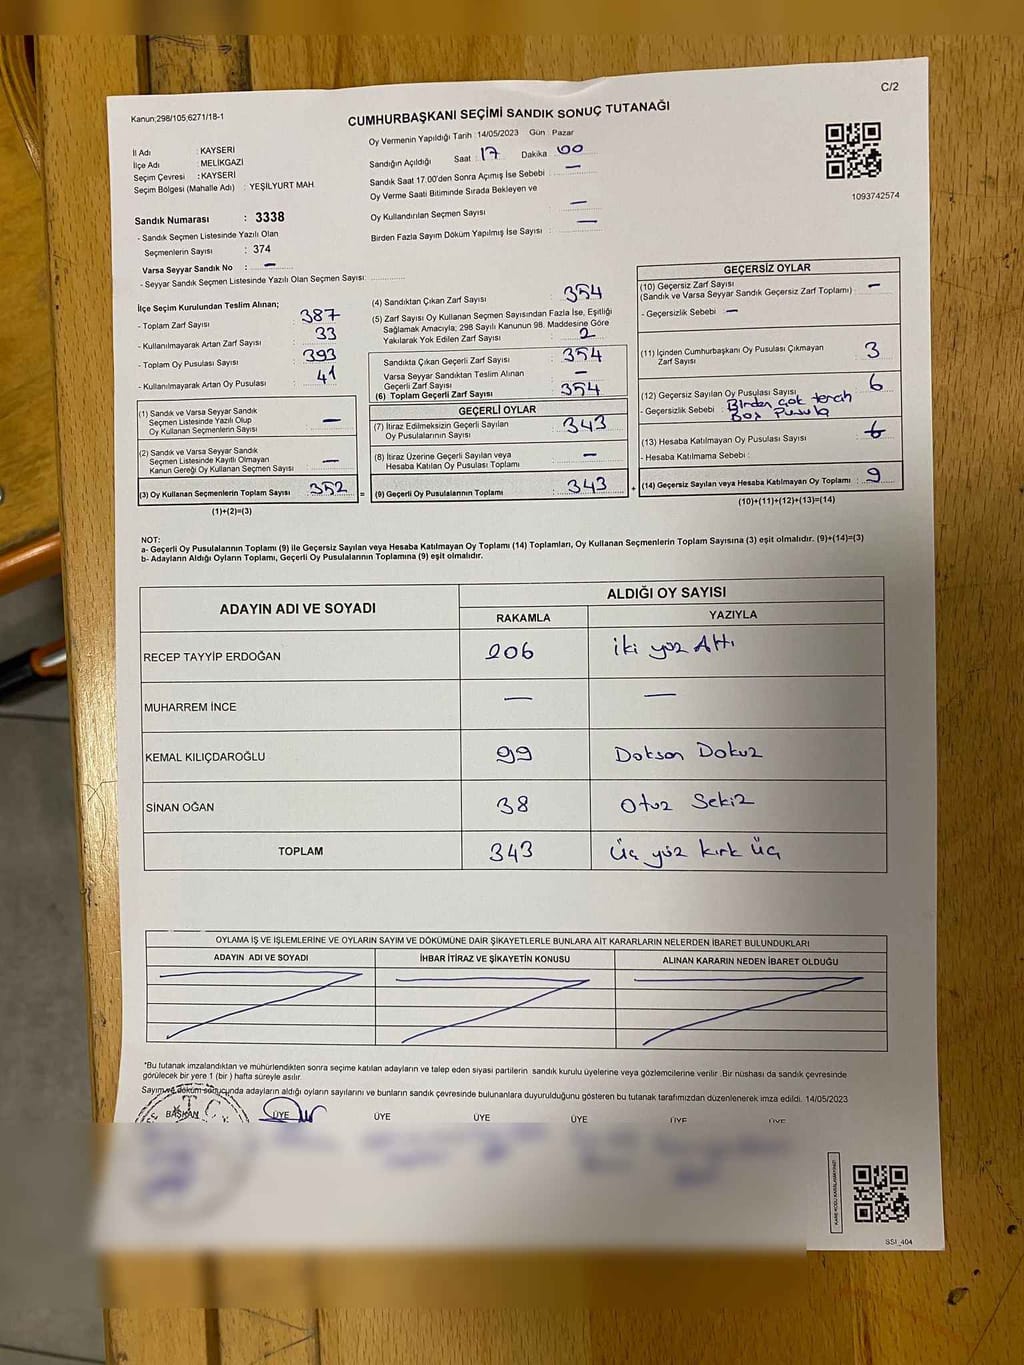 C/2
Kanun;298/105;6271/18-1
CUMHURBAŞKANI SEÇİMİ SANDIK SONUÇ TUTANAĞI
İl Adı : KAYSERİ
İlçe Adı : MELİKGAZİ
Seçim Çevresi : KAYSERİ
Seçim Bölgesi (Mahalle Adı) : YEŞİLYURT MAH.
Oy Vermenin Yapıldığı Tarih : 14/05/2023 Gün : Pazar
Sandığın Açıldığı Saat : 17 Dakika : 00
Sandık Saat 17.00'den Sonra Açımış İse Sebebi : —
Oy Verme Saati Bitiminde Sırada Bekleyen ve
Oy Kullandırılan Seçmen Sayısı : —
Birden Fazla Sayım Döküm Yapılmış İse Sayısı : —
1093742574
Sandık Numarası : 3338
- Sandık Seçmen Listesinde Yazılı Olan
Seçmenlerin Sayısı : 374
Varsa Seyyar Sandık No : —
- Seyyar Sandık Seçmen Listesinde Yazılı Olan Seçmen Sayısı:
İlçe Seçim Kurulundan Teslim Alınan;
- Toplam Zarf Sayısı : 387
- Kullanılmayarak Artan Zarf Sayısı : 33
- Toplam Oy Pusulası Sayısı : 393
- Kullanılmayarak Artan Oy Pusulası : 41
(1) Sandık ve Varsa Seyyar Sandık
Seçmen Listesinde Yazılı Olup
Oy Kullanan Seçmenlerin Sayısı : —
(2) Sandık ve Varsa Seyyar Sandık
Seçmen Listesinde Kayıtlı Olmayan
Kanun Gereği Oy Kullanan Seçmen Sayısı : —
(3) Oy Kullanan Seçmenlerin Toplam Sayısı : 352
(1)+(2)=(3)
(4) Sandıktan Çıkan Zarf Sayısı : 354
(5) Zarf Sayısı Oy Kullanan Seçmen Sayısından Fazla İse, Eşitliği
Sağlamak Amacıyla; 298 Sayılı Kanunun 98. Maddesine Göre
Yakılarak Yok Edilen Zarf Sayısı : 2
Sandıkta Çıkan Geçerli Zarf Sayısı : 354
Varsa Seyyar Sandıktan Teslim Alınan
Geçerli Zarf Sayısı : —
(6) Toplam Geçerli Zarf Sayısı : 354
GEÇERLİ OYLAR
(7) İtiraz Edilmeksizin Geçerli Sayılan
Oy Pusulalarının Sayısı : 343
(8) İtiraz Üzerine Geçerli Sayılan veya
Hesaba Katılan Oy Pusulası Toplamı : —
= (9) Geçerli Oy Pusulalarının Toplamı : 343
GEÇERSİZ OYLAR
(10) Geçersiz Zarf Sayısı
(Sandık ve Varsa Seyyar Sandık Geçersiz Zarf Toplamı) : —
- Geçersizlik Sebebi : —
(11) İçinden Cumhurbaşkanı Oy Pusulası Çıkmayan
Zarf Sayısı : 3
(12) Geçersiz Sayılan Oy Pusulası Sayısı : 6
- Geçersizlik Sebebi : Birden çok tercih
Boş Pusula
(13) Hesaba Katılmayan Oy Pusulası Sayısı :
- Hesaba Katılmama Sebebi :
+ (14) Geçersiz Sayılan veya Hesaba Katılmayan Oy Toplamı : 9
(10)+(11)+(12)+(13)=(14)
NOT:
a- Geçerli Oy Pusulalarının Toplamı (9) ile Geçersiz Sayılan veya Hesaba Katılmayan Oy Toplamı (14) Toplamları, Oy Kullanan Seçmenlerin Toplam Sayısına (3) eşit olmalıdır. (9)+(14)=(3)
b- Adayların Aldığı Oyların Toplamı, Geçerli Oy Pusulalarının Toplamına (9) eşit olmalıdır.
ADAYIN ADI VE SOYADI
ALDIĞI OY SAYISI
RAKAMLA YAZIYLA
RECEP TAYYİP ERDOĞAN 206 iki yüz Altı
MUHARREM İNCE — —
KEMAL KILIÇDAROĞLU 99 Doksan Dokuz
SİNAN OĞAN 38 Otuz Sekiz
TOPLAM 343 Üç yüz kırk üç
OYLAMA İŞ VE İŞLEMLERİNE VE OYLARIN SAYIM VE DÖKÜMÜNE DAİR ŞİKAYETLERLE BUNLARA AİT KARARLARIN NELERDEN İBARET BULUNDUKLARI
ADAYIN ADI VE SOYADI İHBAR İTİRAZ VE ŞİKAYETİN KONUSU ALINAN KARARIN NEDEN İBARET OLDUĞU
*Bu tutanak imzalandıktan ve mühürlendikten sonra seçime katılan adayların ve talep eden siyasi partilerin sandık kurulu üyelerine veya gözlemcilerine verilir. Bir nüshası da sandık çevresinde
görülecek bir yere 1 (bir) hafta süreyle asılır.
Sayım ve döküm sonucunda adayların aldığı oyların sayılarını ve bunların sandık çevresinde bulunanlara duyurulduğunu gösteren bu tutanak tarafımızdan düzenlenerek imza edildi. 14/05/2023
BAŞKAN ÜYE ÜYE ÜYE ÜYE ÜYE ÜYE
SSI_404